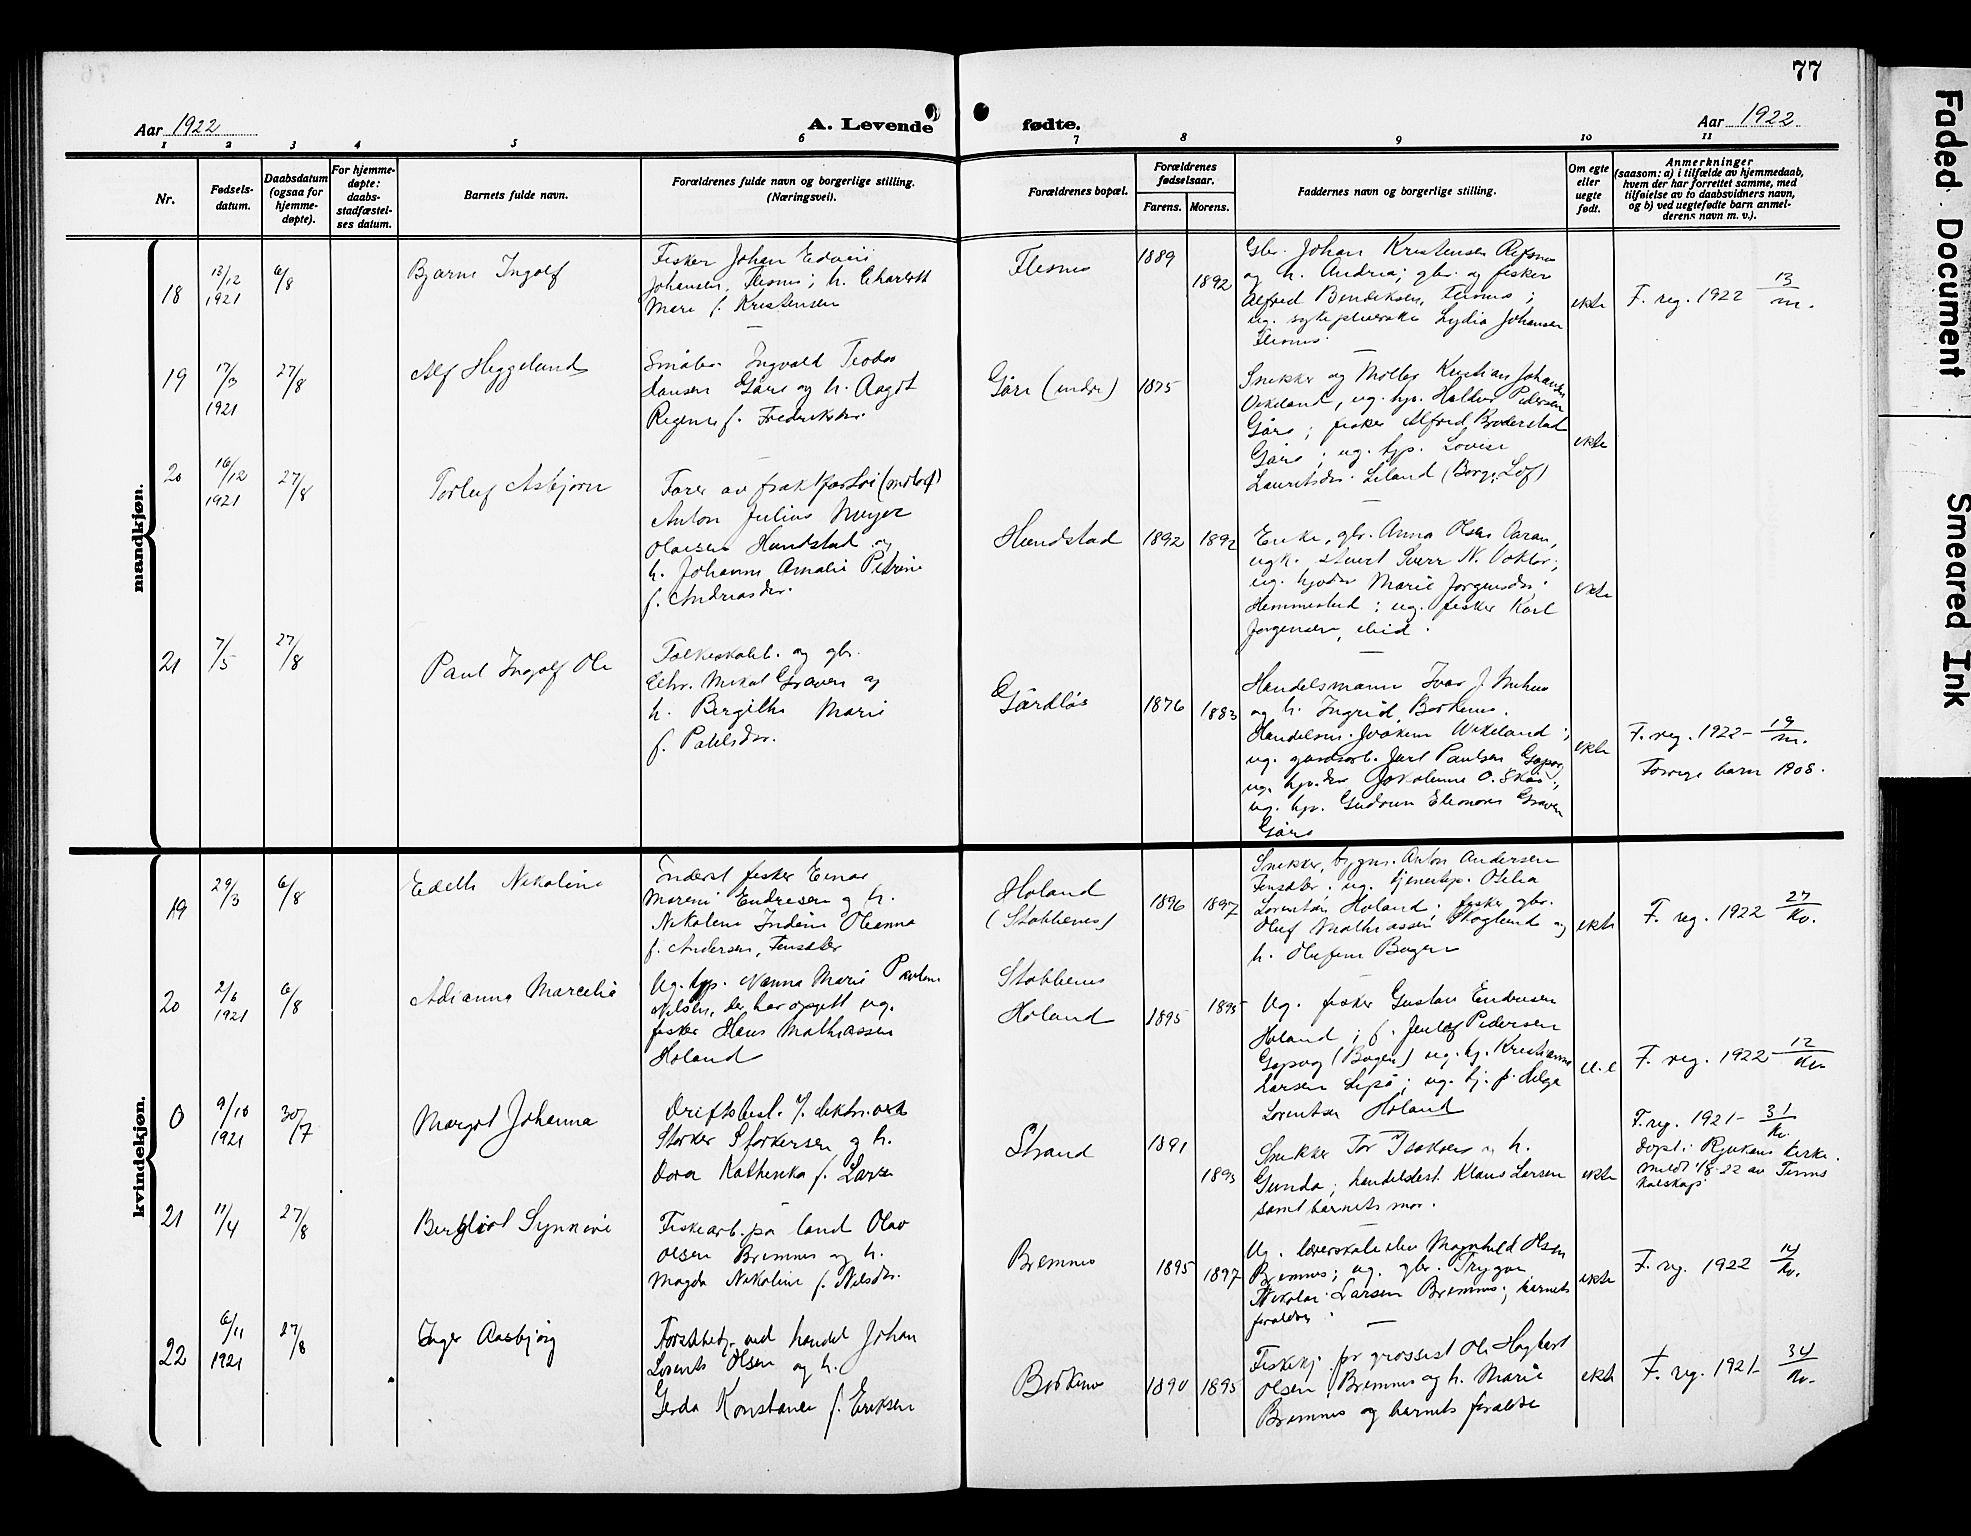 77
Aar 1922
A. Levende fødte.
Aar 1922.
1 2 3 4 5 6 7 8 9 10 11
Nr.
Fødsels-
datum.
Daabsdatum
(ogsaa for
hjemme-
døpte).
For hjemme-
døpte:
daabs-
stadfæstel-
ses datum.
Barnets fulde navn.
Forældrenes fulde navn og borgerlige stilling.
(Næringsvei).
Forældrenes bopæl.
Forældrenes
fødselsaar.
Farens. Morens.
Faddernes navn og borgerlige stilling.
Om egte
eller
uegte
født.
Anmerkninger
(saasom: a) i tilfælde av hjemmedaab,
hvem der har forrettet samme, med
tilføielse av to daabsvidners navn,
og b) ved uegtefødte barn anmel-
derens navn m. v.).
mandkjøn.
18
13/12
1921
6/8
Bjarne Ingolf
Fisker Johan Edvin
Johansen, Flesnes; h. Charlott
Marie f. Kristensen
Flesnes
1889
1892
Gbr. Johan Kristensen Refsnes
og h. Andrea; gbr. og fisker
Alfred Bendiksen, Flesnes;
ug. sykepleierske Lydia Johansen
Flesnes.
ekte
F. reg. 1922 13/m.
19
17/3
1921
27/8
Alf Heggelund
Småbr. Ingvald Teodor
Hansen Gåre og h. Aagot
Regine f. Fredriksdr.
Gåre (indre)
1875
Snekker og Møller Kristian Johansen
Vikeland, ug. hjp. Haldis Pedersen
Gåre; fisker Alfred Broderstad
Gåre; ug. hjp. Lovise
Lauritsdr. Liland (Borge, Lof)
ekte
20
16/12
1921
27/8
Torleif Asbjørn
Fører av fraktfartøi
Anton Julius Meyer
Olaisen Hundstad og
h. Johanne Amalie Petrine
f. Andreasdr.
Hundstad
1892
1892
Enke, gbr. Anna Olsen Aaran,
ugk. stuert Sverr N. Vokter;
ug. hjdtr Marie Jørgensdr.
Hemmestad; ug. fisker Karl
Jørgensen, ibid.
ekte
21
7/5
27/8
Paul Ingolf Ole
Folkeskolel. og gbr.
Chr. Mikal Graven og
h. Bergithe Marie
f. Paulsdr.
Gårdløs
1876
1883
Handelsmann Ivar J. Mehus
og h. Ingrid, Borkenes.
Handelsm. Joakim Wikeland;
ug. gardsarb. Jarl Paulsen Gapøy
ug. hjp. Gudrun Eleonore Graven
Gåre
ekte
F. reg. 1922 - 19/m.
Forrige barn 1908.
kvindekjøn.
19
29/3
6/8
Edith Nikoline
Inderst fisker Einar
Mareni Endresen og h.
Nikoline Indine Oleanna
f. Andersen, Fenstater
Høland
(Stobbenes)
1896
1897
Snekker, bygm. Anton Andersen
ug. tjenerhp. Otelia
Lorentsen Høland; fisker gbr.
Oluf Mathiassen Skoglund og
h. Olufine Bogen
ekte
F. reg. 1922 27/kv.
20
2/6
1921
6/8
Adianna Marcelie
Ug. hjp. Nanna Marie Pauline
Nilsen, der har opgitt ug.
fisker Hans Mathiassen
Høland
Stobbenes
Høland
1895
1895
Ug. fisker Gustav Endresen
Høland; f. Jentoft Pedersen
Gapøy (Bogen) ug. hj. Kristianna
Larsen; ug. hj. p. Helga
Lorentsen Høland
u. e
F. reg. 1922 - 12/kv
0
9/10
1921
30/7
Margot Johanna
Driftsbest. v. elektr. verk
Størker Størkersen og h.
Dora Kathinka f. Larsen
Strand
1891
1893
Snekker Tor Isaksen og h.
Gunda; handelsbest. Klaus Larsen
samt barnets mor.
ekte
F. reg. 1921 - 31/kv.
Døpt i Rjukan kirke.
Meldt 1/8-22 av Tinns
kalskap
21
11/4
27/8
Bergliot Synnøve
Fiskearb. på land Olav
Olsen Bremnes og h.
Magda Nikoline f. Nilsdr.
Bremnes
1895
1897
Ug. lærerskoleelev Magnhild Olsen
Bremnes; ug. gbr. Trygve
Nikolai Larsen Bremnes; barnets
foreldre.
ekte
F. reg. 1922 14/kv.
22
6/11
1921
27/8
Inger Aasbjørg
Forsth.betj. ved handel Johan
Lorents Olsen og h.
Gerda Konstance f. Eriksen
Borkenes
1890
1895
Fiskekj. for grossist Ole Hagbart
Olsen, Bremnes og h. Marie
Bremnes og barnets foreldre
ekte
F. reg. 1921 - 34/kv.
Faded Document
Smeared Ink